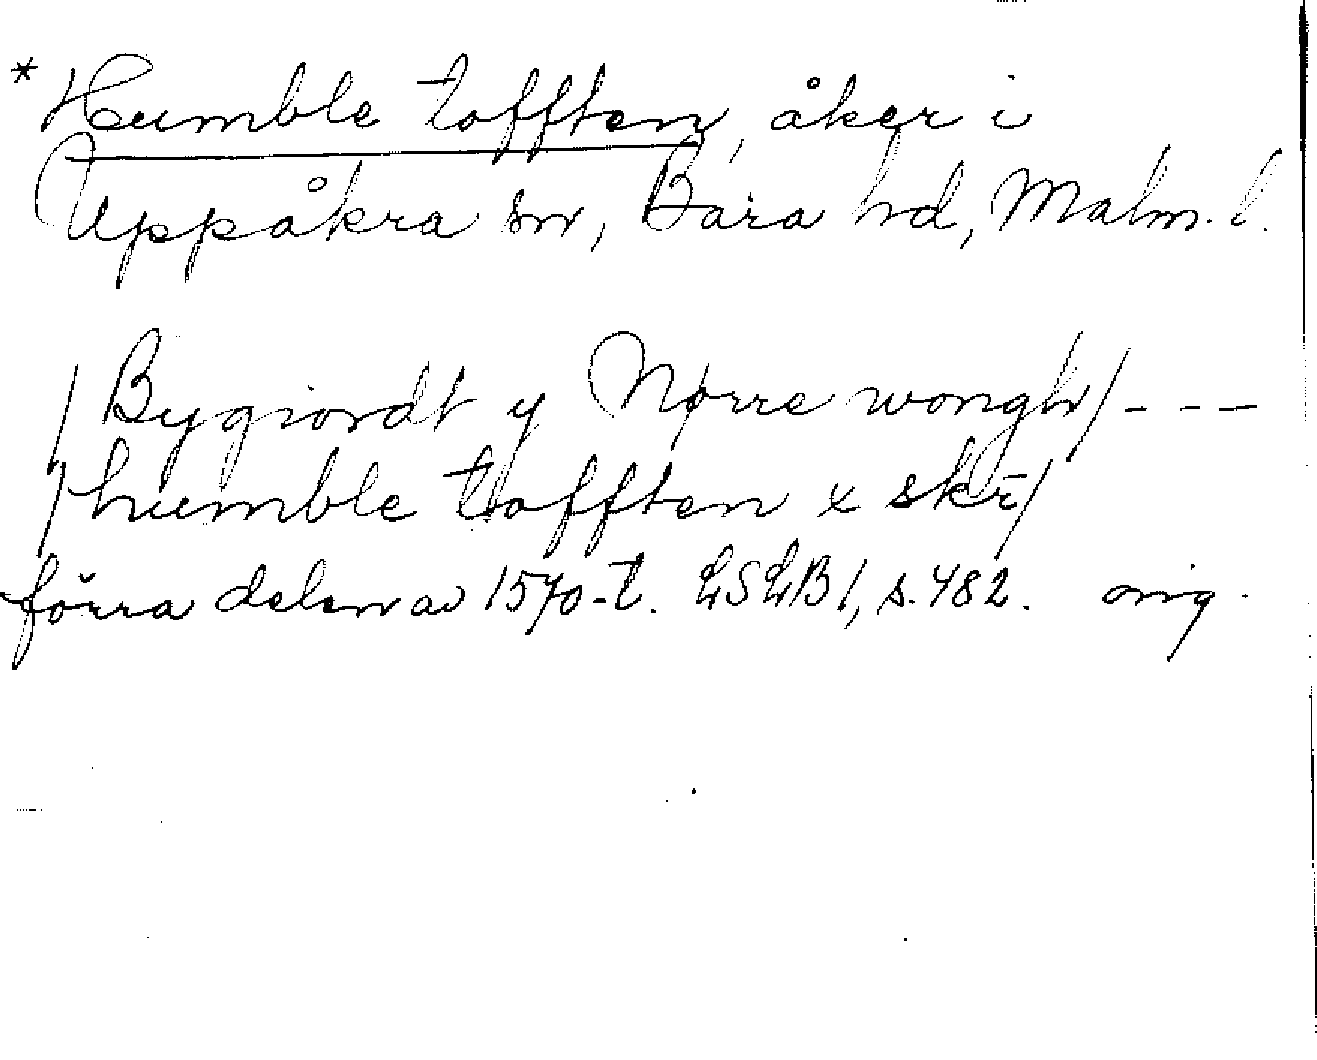 *Humble tofften, åker i
Uppåkra sn, Bara hd, Malm. l.
/Bygiordt y Nørre wongh/ - - -
/humble tofften x skr̄/
förra delen av 1570-t. LSLB 1, s. 482. orig.